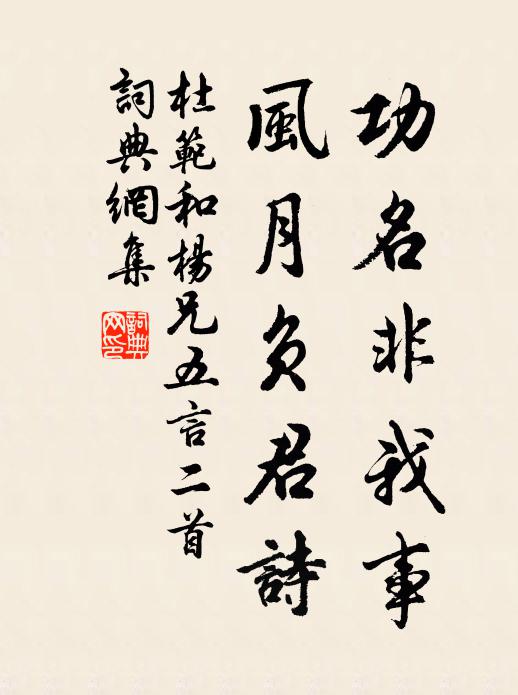 功名非我事
風月負君詩
杜範和楊兄五言二首
詞典網集
詞典
网印